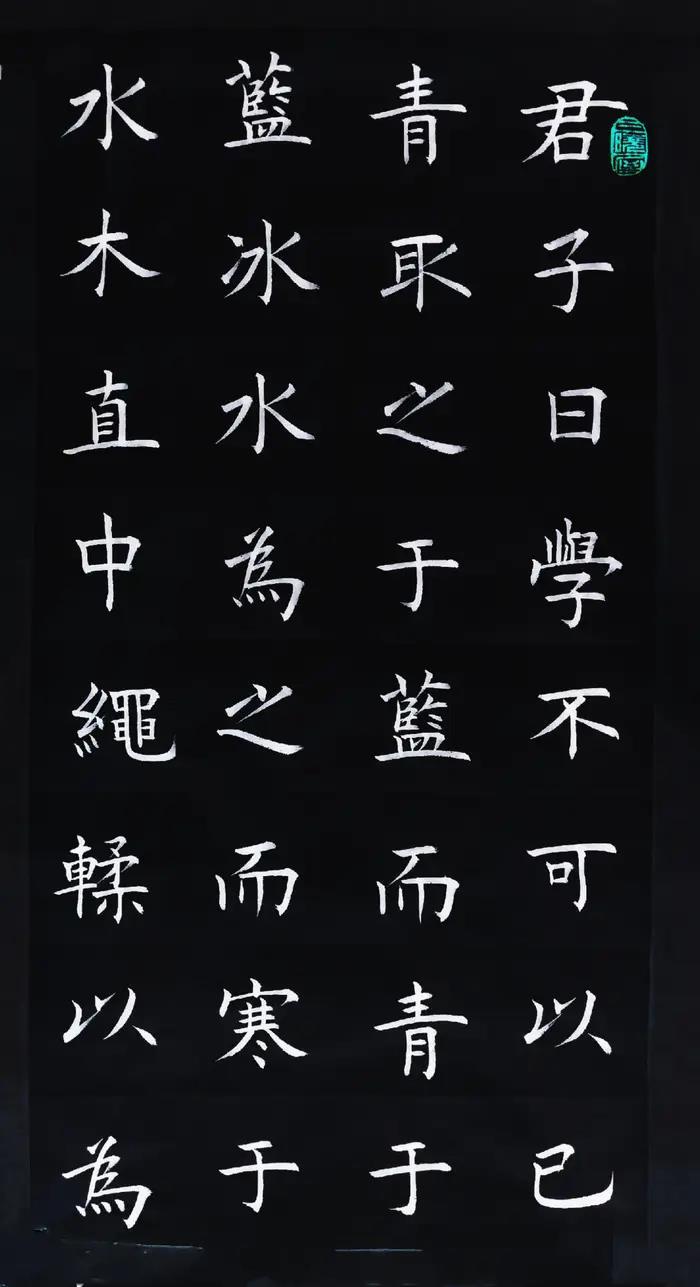 君子曰學不可以已
青取之于藍而青于
藍冰水為之而寒于
水木直中繩輮以為